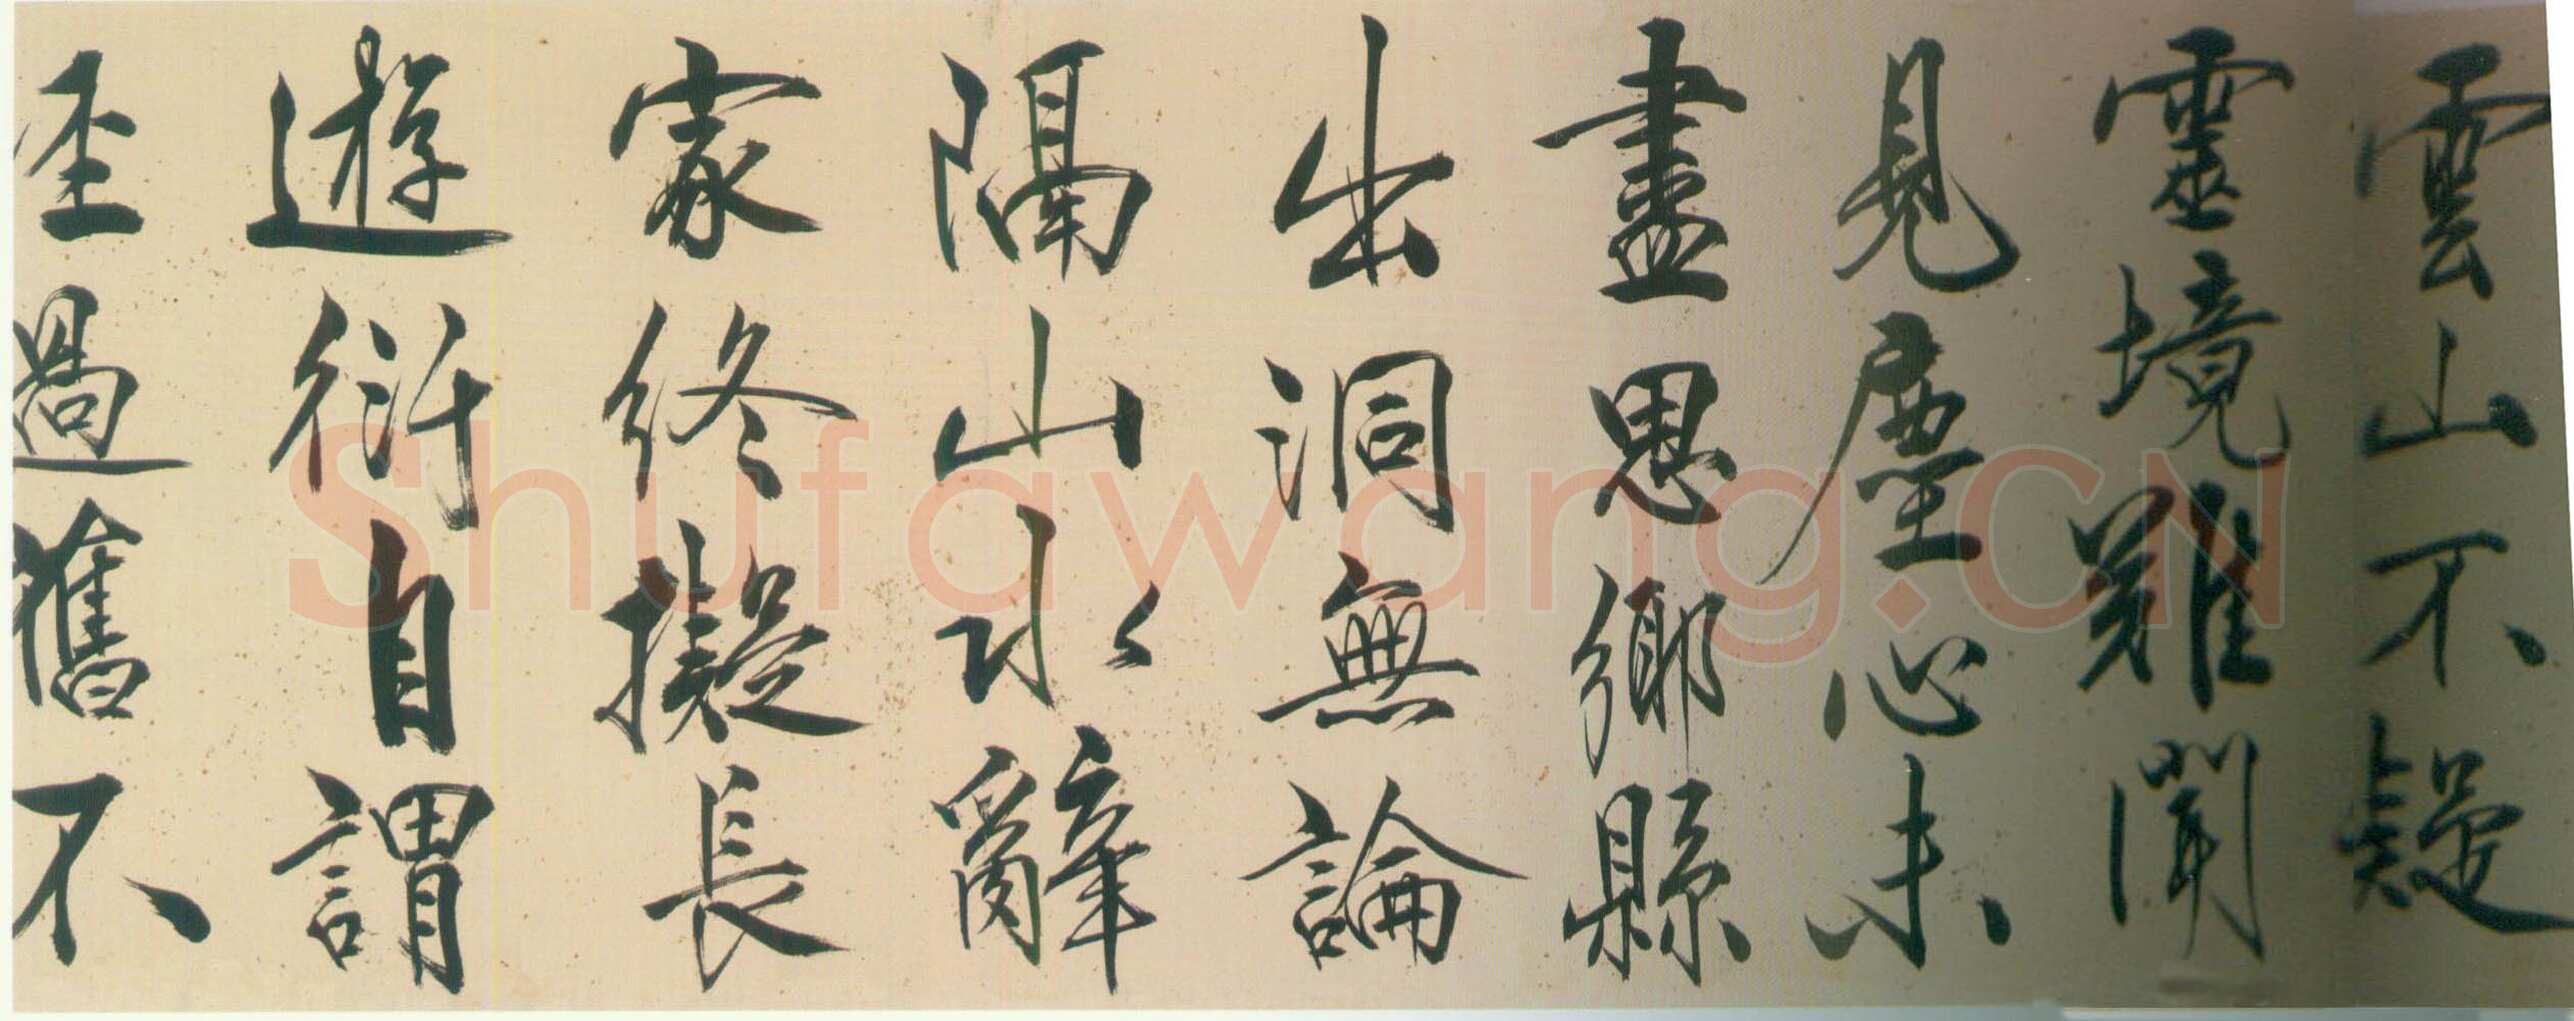 雲山不疑
靈境難聞
見塵心未
盡思鄉縣
出洞無論
隔山水辭
家終擬長
遊衍自謂
經過舊不
Shufawang.CN